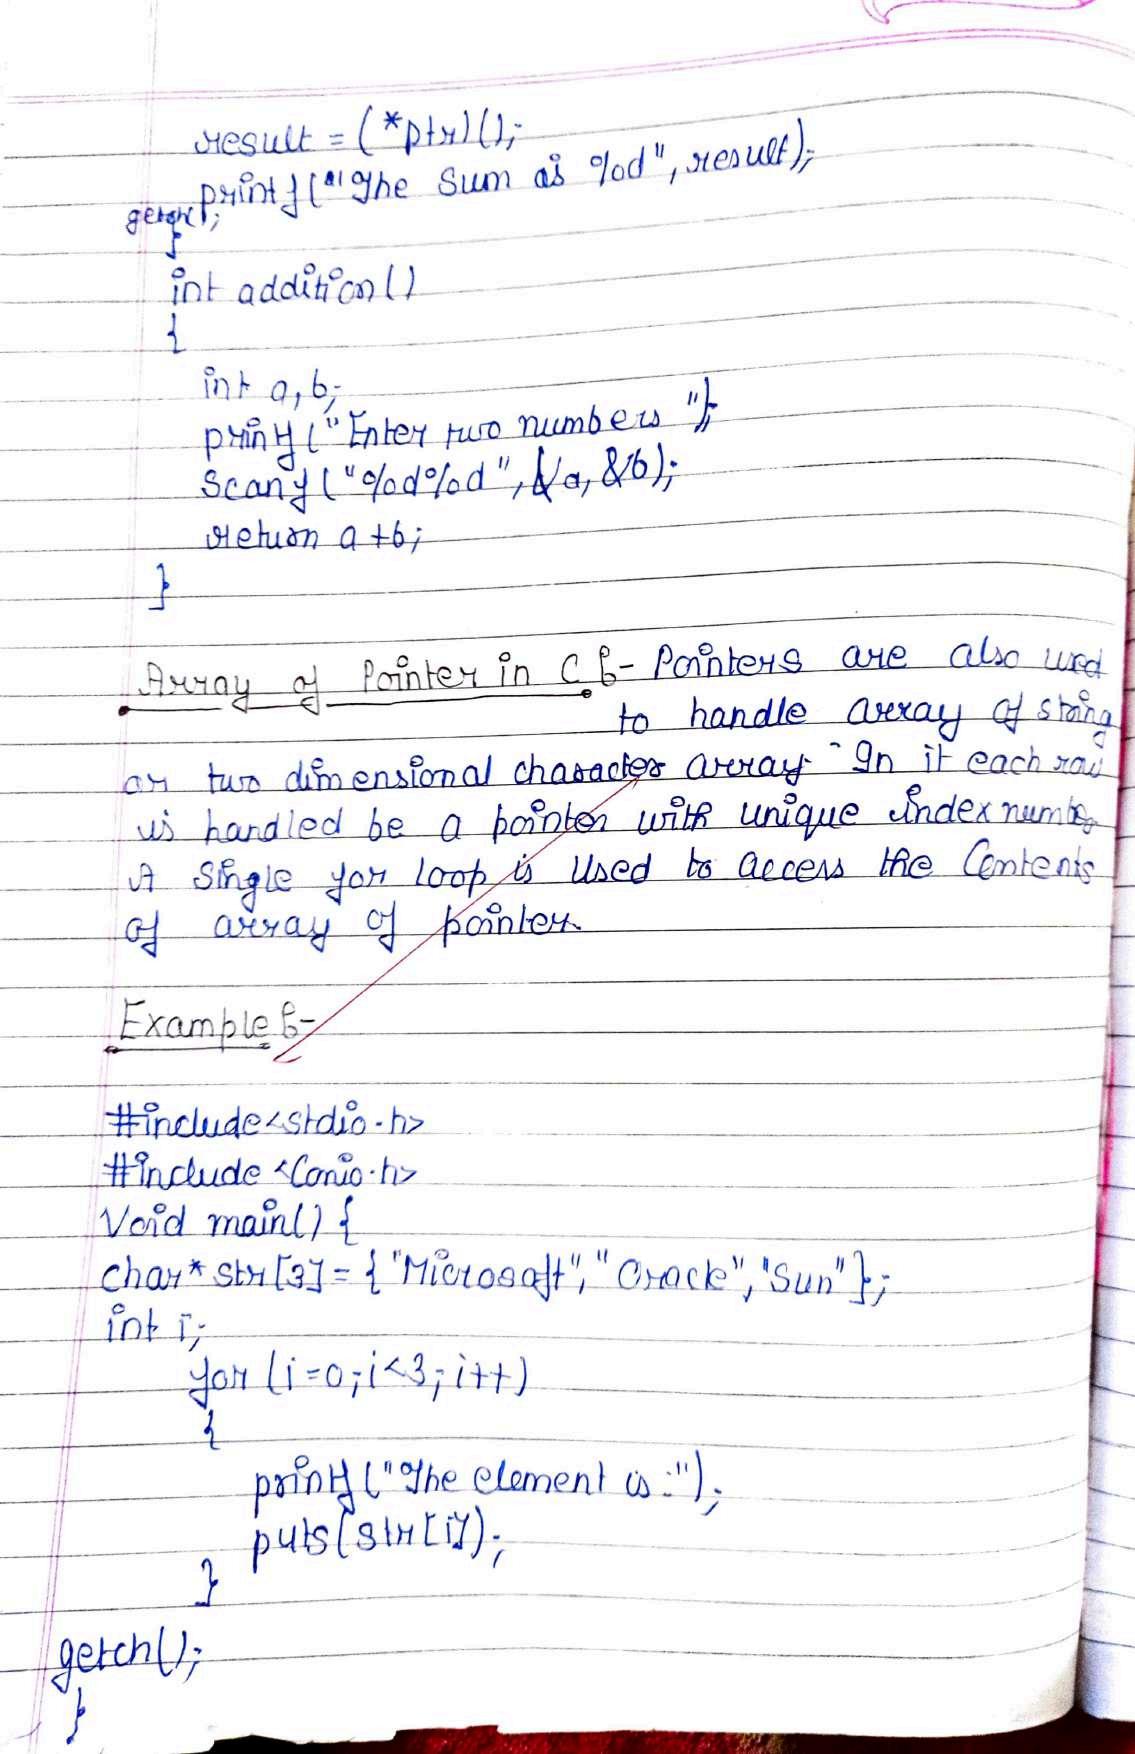 result = (*ptr)();
printf("The Sum is %d", result);
getch();
}
int addition()
{
int a, b;
printf("Enter two numbers");
scanf("%d%d", &a, &b);
return a+b;
}
Array of Pointer in C :- Pointers are also used
to handle array of string
or two dimensional character array. In it each row
is handled be a pointer with unique index number
A Single for loop is Used to access the Contents
of array of pointer.
Example :-
#include<stdio.h>
#include <Conio.h>
Void main() {
char* str[3] = {"Microsoft", "Orack", "Sun"};
int i;
for (i=0; i<3; i++)
{
printf("The element is :");
puts(str[i]);
}
getch();
}